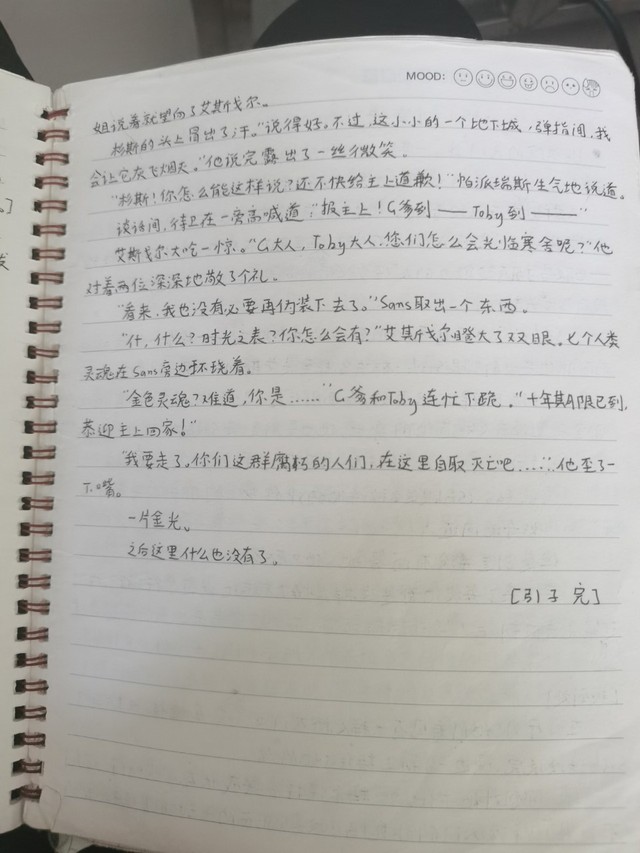 MOOD:
姐说着就望向了艾斯戈尔。
杉斯的头上冒出了汗。"说得好。不过,这小小的一个地下城,弹指间,我
会让它灰飞烟灭。"他说完露出了一丝微笑。
"杉斯!你怎么能这样说?还不快给主上道歉!"帕派瑞斯生气地说道。
谈话间,侍卫在一旁高喊道:"报主上!G爹到——Toby到———"
艾斯戈尔大吃一惊。"G大人,Toby大人,您们怎么会光临寒舍呢?"他
对着两位深深地敬了个礼。
"看来,我也没有必要再伪装下去了。"Sans取出一个东西。
"什,什么?时光之表?你怎么会有?"艾斯戈尔瞪大了双眼。七个人类
灵魂在Sans旁边环绕着。
"金色灵魂?难道,你是……"G爹和Toby连忙下跪。"十年期限已到,
恭迎主上回家!"
"我要走了。你们这群腐朽的人们,在这里自取灭亡吧……"他歪了一
下嘴。
一片金光。
之后这里什么也没有了。
[引子 完]